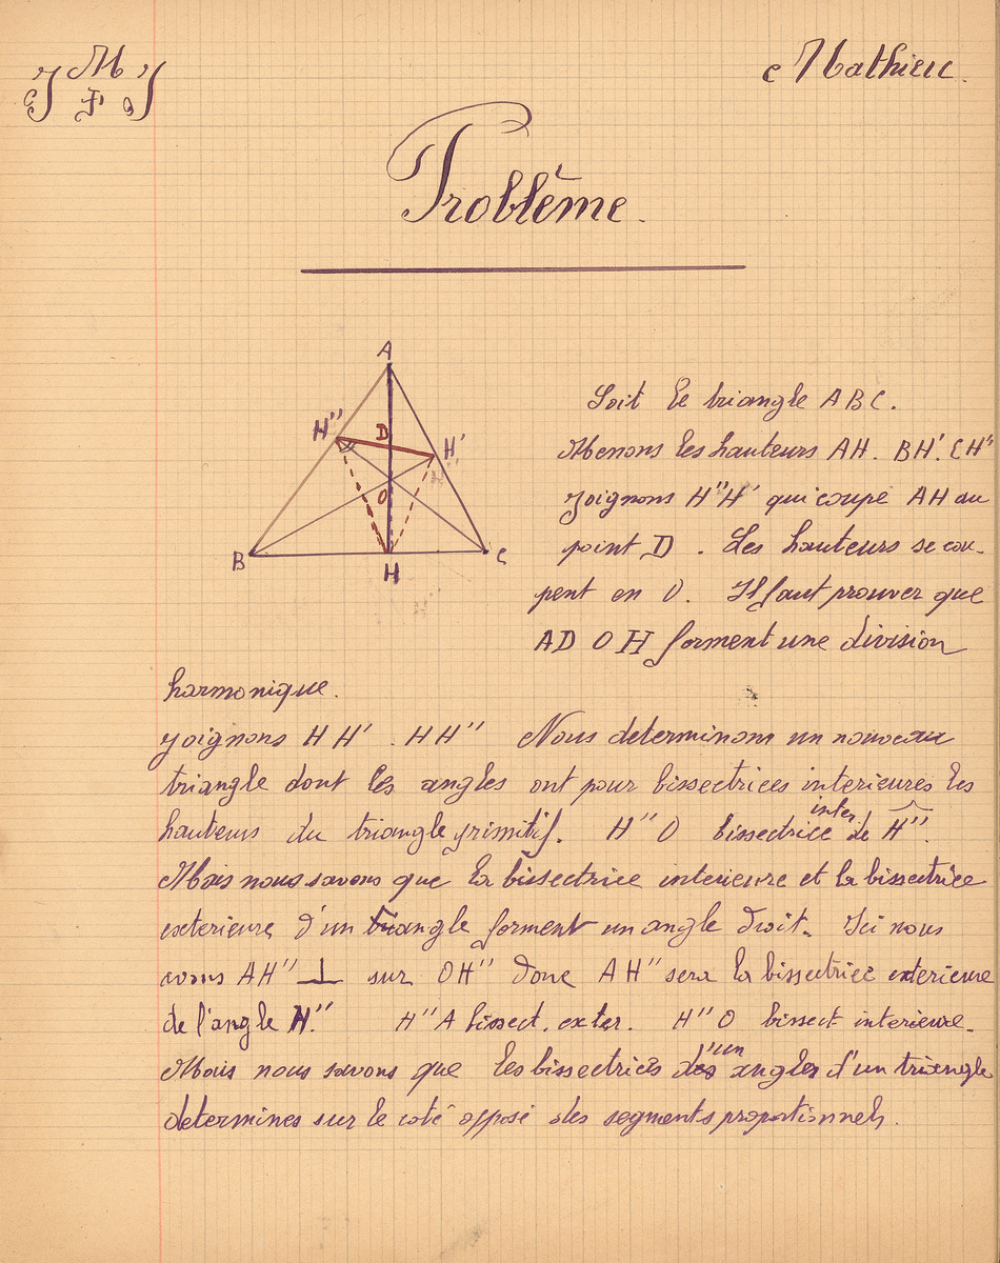 M
J F J
Mathieu.
Problème.
A
H'' D H'
O
B H C
Soit le triangle ABC.
Menons les hauteurs AH. BH'. CH''
joignons H''H' qui coupe AH au
point D. Les hauteurs se cou-
pent en O. Il faut prouver que
AD OH forment une division
harmonique.
joignons HH'. HH'' Nous determinons un nouveau
triangle dont les angles ont pour bissectrices interieures les
hauteurs du triangle primitif. H''O bissectrice inter. de H''.
Mais nous savons que la bissectrice interieure et la bissectrice
exterieure d'un triangle forment un angle droit. Ici nous
avons AH'' ⊥ sur OH'' donc AH'' sera la bissectrice exterieure
de l'angle H''. H''A bissect. exter. H''O bissect interieure.
Mais nous savons que les bissectrices d'un angle d'un triangle
determines sur le coté opposé des segments proportionnels.